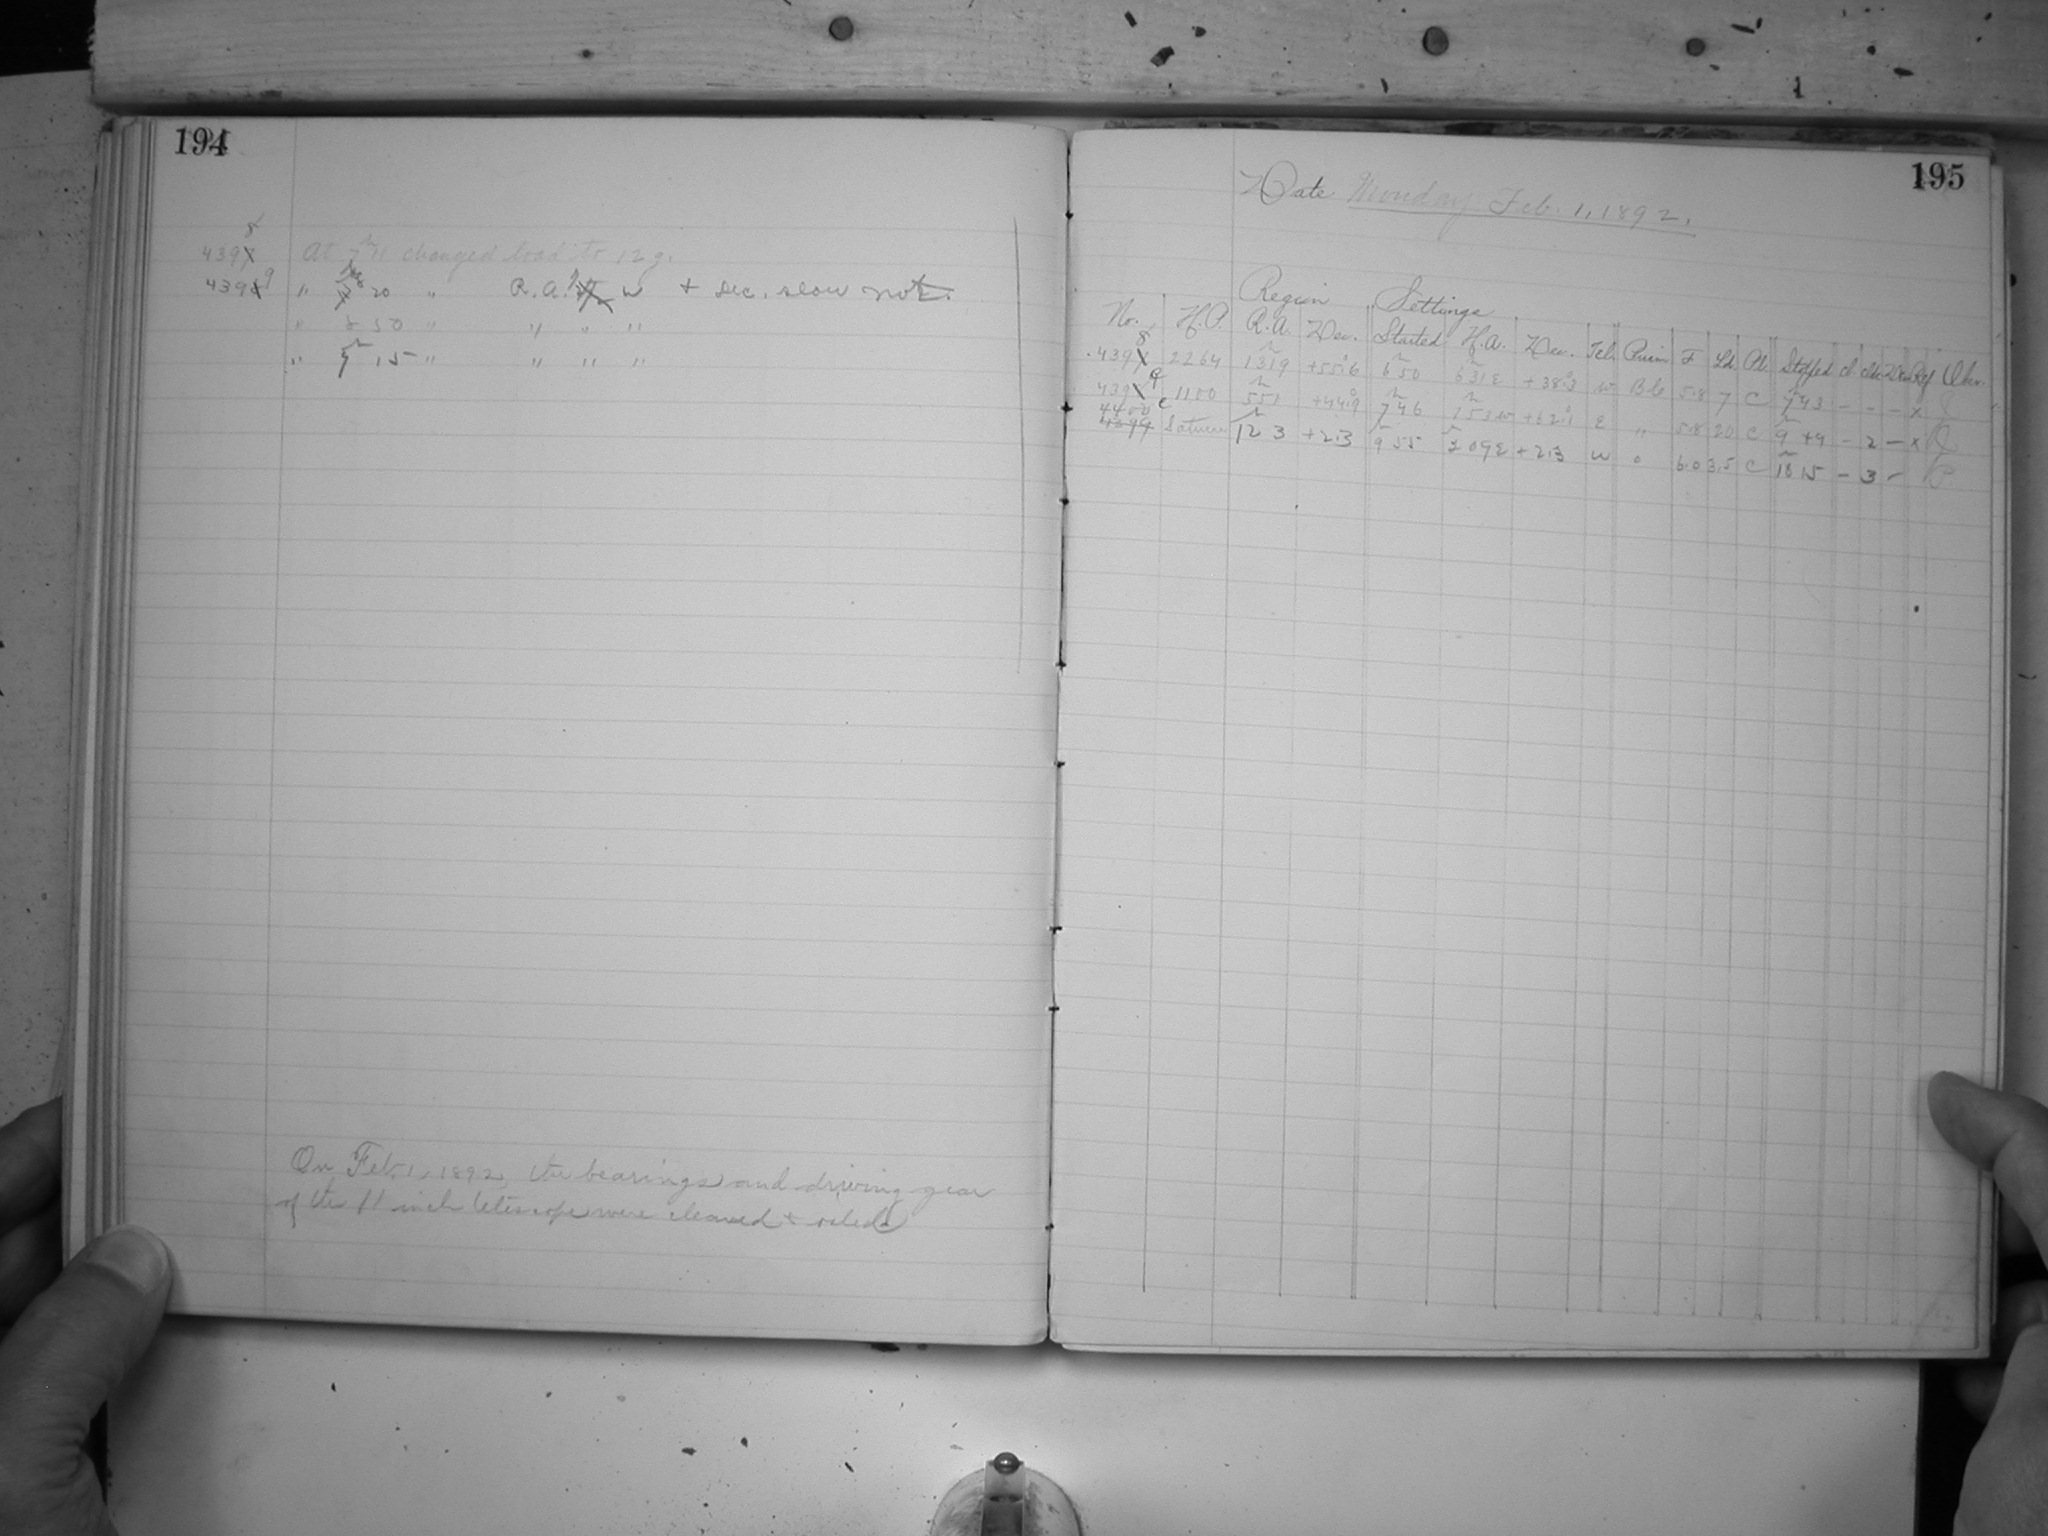 194
4398 At 7h 11 changed load to 12 g.
4399 " 20 " R.A. W + sec. slow mot.
" 8 50 " " " "
" 9h 15 " " " "
On Feb. 1, 1892, the bearings and driving gear
of the 11 inch telescope were cleaned & oiled
195
Date Monday Feb. 1, 1892.
Region Settings
No. H.P. R.A. Dec. Started H.A. Dec. Tel. Prism F Ld. Pl. Stopped Ref Obsr.
4398 2264 13h19 +55°.6 6h50 6h31E +38°.3 W B6 5.8 7 C 7h43 - - - x
4399 1100 5h51 +44°.9 7h46 1h53W +62°.1 E " 5.8 20 C 9h +4 - 2 - x
4400 Saturn 12h 3 +2.3 9h55 3h09E +2.3 W " 6.0 3.5 C 10h15 - 3 -